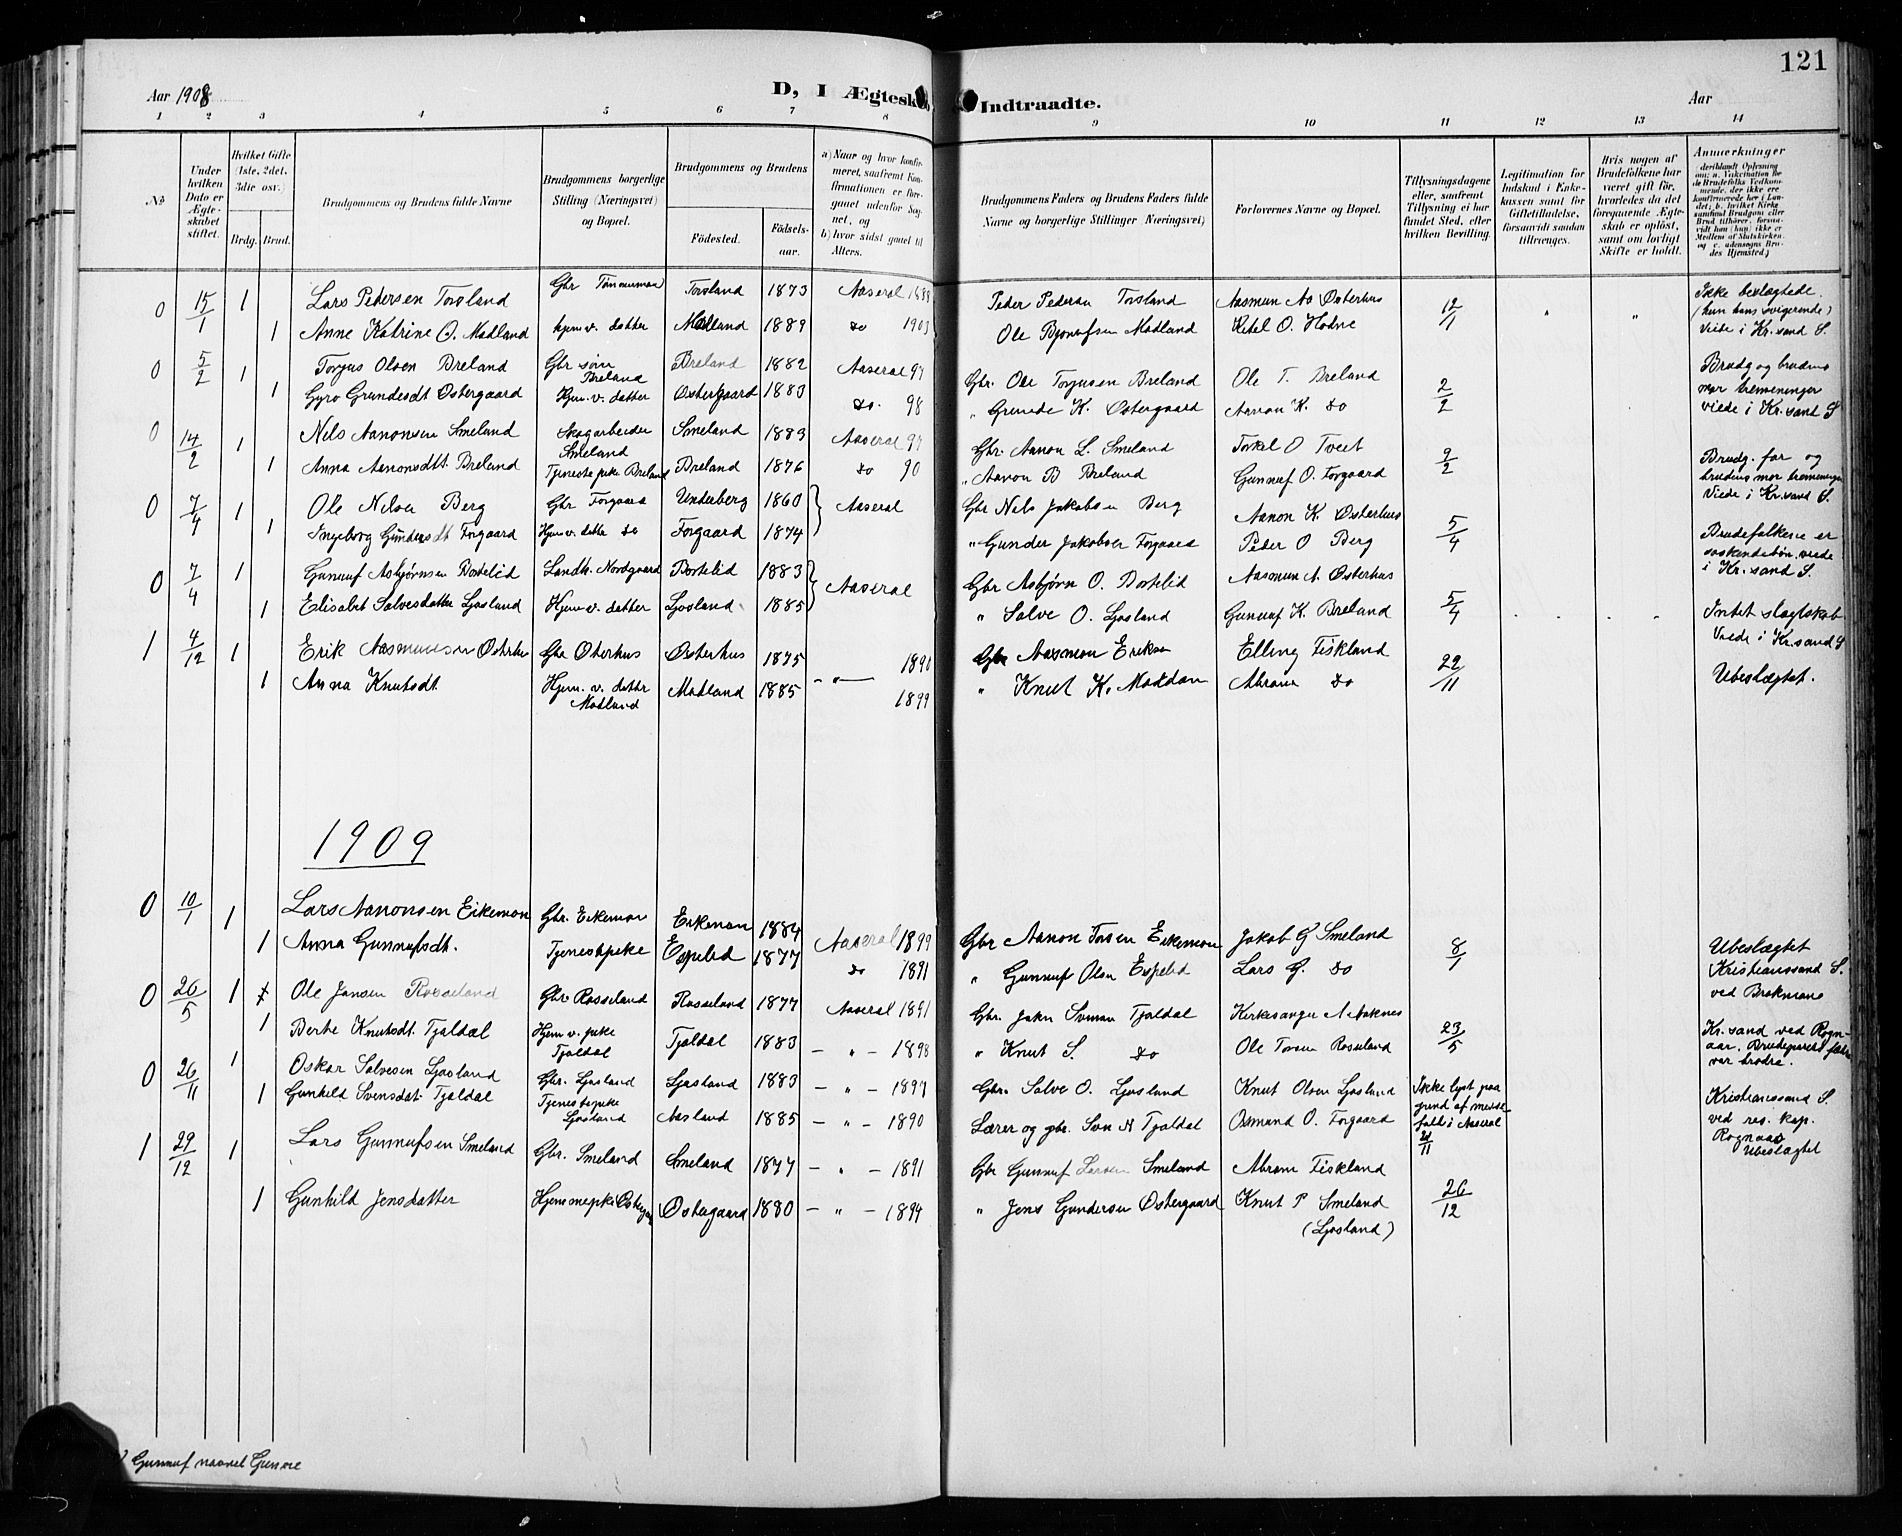 121
Aar 1908
D, I Ægtesk
Indtraadte.
Aar
1 2 3 4 5 6 7 8 9 10 11 12 13 14
No
Under hvilken Dato er Ægteskabet stiftet.
Hvilket Gifte (1ste, 2det, 3die osv.)
Brdg. Brud.
Brudgommens og Brudens fulde Navne
Brudgommens borgerlige Stilling (Næringsvei) og Bopæl.
Brudgommens og Brudens
Fødested. Fødselsaar.
a) Naar og hvor konfirmeret, saafremt Konfirmationen er foregaaet udenfor Sognet, og
b) hvor sidst gaaet til Alters.
Brudgommens Faders og Brudens Faders fulde Navne og borgerlige Stillinger Næringsvei)
Forlovernes Navne og Bopæl.
Tillysningsdagene eller, saafremt Tillysning ei har fundet Sted, efter hvilken Bevilling.
Legitimation for Indskud i Enkekassen samt for Giftetilladelse, forsaavidt saadan tiltrænges.
Hvis nogen af Brudefolkene har været gift før, hvorledes da det foregaaende Ægteskab er opløst, samt om lovligt Skifte er holdt.
Anmerkninger
0 15/1 1 Lars Pedersen Torsland Gbr Tømmermand Torsland 1873 Aaseral 1888 Peder Pedersen Torsland Aasmun Aa Østerhus 12/1 " " Ikke beslægtede.
1 Anne Katrine O. Madland hjem v. datter Madland 1889 do 1903 Ole Bjønulfsen Madland Ketel O. Hodne (hun hans svigerinde) Viede i Kr.sand S.
0 5/2 1 Torjus Olsen Breland Gbr søn Breland Breland 1882 Aaseral 97 Gbr. Ole Torjusen Breland Ole T. Breland 2/2 Brudg og brudens mor tremeninger
1 Gyro Grundesdt Østergaard Hjem. v. datter Østergaard 1883 do. 98 " Grunde K. Østergaard Aanon K. do viede i Kr.sand S
0 14/2 1 Nils Aanonsen Smeland Skogarbeider Smeland Smeland 1883 Aaseral 97 Gbr. Aanon L. Smeland Torkel O Tveit 9/2 Brudg. far og
1 Anna Aanonsdt. Breland Tjenestepike Breland Breland 1876 do 90 " Aanon B Breland Gunnuf O. Forgaard brudens mor tremeninger Viede i Kr.sand S.
0 7/4 1 Ole Nilsen Berg Gbr Forgaard Underberg 1860 Aaseral Gbr Nils Jakobsen Berg Aanon K. Østerhus 5/4 Brudefolkene er
1 Ingeborg Gundersdt Forgaard Hjem v. datter do Forgaard 1874 " Gunder Jakobsen Forgaard Peder O Berg søskendebørn, viede i Kr.sand S.
0 7/4 1 Gunnuf Asbjørnsen Bortelid Landh. Nordgaard Bortelid 1883 Aaseral Gbr Asbjørn O. Bortelid Aasmun A. Østerhus 5/4 . . . Intet slagtskab
1 Elisabet Salvesdatter Ljosland Hjem v. datter Ljosland 1885 " Salve O. Ljosland Gunnuf K. Breland Viede i Kr.sand S
1 4/12 1 Erik Aasmunsen Østerhus Gbr Østerhus Østerhus 1875 - " - 1890 Gbr Aasmon Eriksen Elling Fiskland 22/11 Ubeslægtet.
1 Anna Knutsdt. Hjem. v. datter Madland Madland 1885 1899 " Knut K. Maddan Abram do
1909
0 10/1 1 Lars Aanonsen Eikemon Gbr. Eikemon Eikemon 1884 Aaseral 1899 Gbr Aanon Torsen Eikemon Jakob G Smeland 8/1 Ubeslægtet
1 Anna Gunnufsdt. Tjenestpike Espelid 1877 do 1891 " Gunnuf Olsen Espelid Lars G. do Kristianssand S. ved Brekmans
0 26/5 1 Ole Jansen Rosseland Gbr Rosseland Rosseland 1877 Aaseral 1891 Gbr. Jakn Svensen Tjaldal Kirkesanger 23/5 Kr.sand ved Rognaar.
1 Berte Knutsdt. Tjaldal Hjem v. pike Tjaldal Tjaldal 1883 - " - 1898 " Knut S. do Ole Torsen Rosseland Brudeparets fædre var brødre.
0 26/11 1 Oskar Salvesen Ljosland Gbr. Ljosland Ljosland 1883 - " - 1897 Gbr. Salve O. Ljosland Knut Olsen Ljosland Ikke lyst paa grund af messefald i Aaseral 21/11 Kristianssand S.
1 Gunhild Svensdat. Tjaldal Tjenestepike Ljosland Aasland 1885 - " - 1890 Lærer og gbr. Sven N Tjaldal Osmund O. Forgaard ved res. kap. Rognaas Ubeslægtet
1 29/12 1 Lars Gunnufsen Smeland Gbr. Smeland Smeland 1877 - " - 1891 Gbr Gunnuf Larsen Smeland Abram Fiskland 26/12
1 Gunhild Jensdatter Hjemmepike Østergaard Østergaard 1880 - " - 1894 " Jens Gundersen Østergaard Knut P Smeland (Ljosland)
) Gunnuf naavnet Gunnre